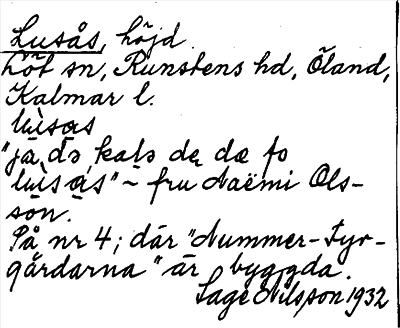 Lusås, höjd
Löt sn, Runstens hd, Öland,
Kalmar l.
lùsas
"ja, də kalə de dæ fo
lùsas" ~ fru Naëmi Ols-
son.
På nr 4; där "Nummer-Fyr-
gårdarna" är byggda.
Sage Nilsson 1932